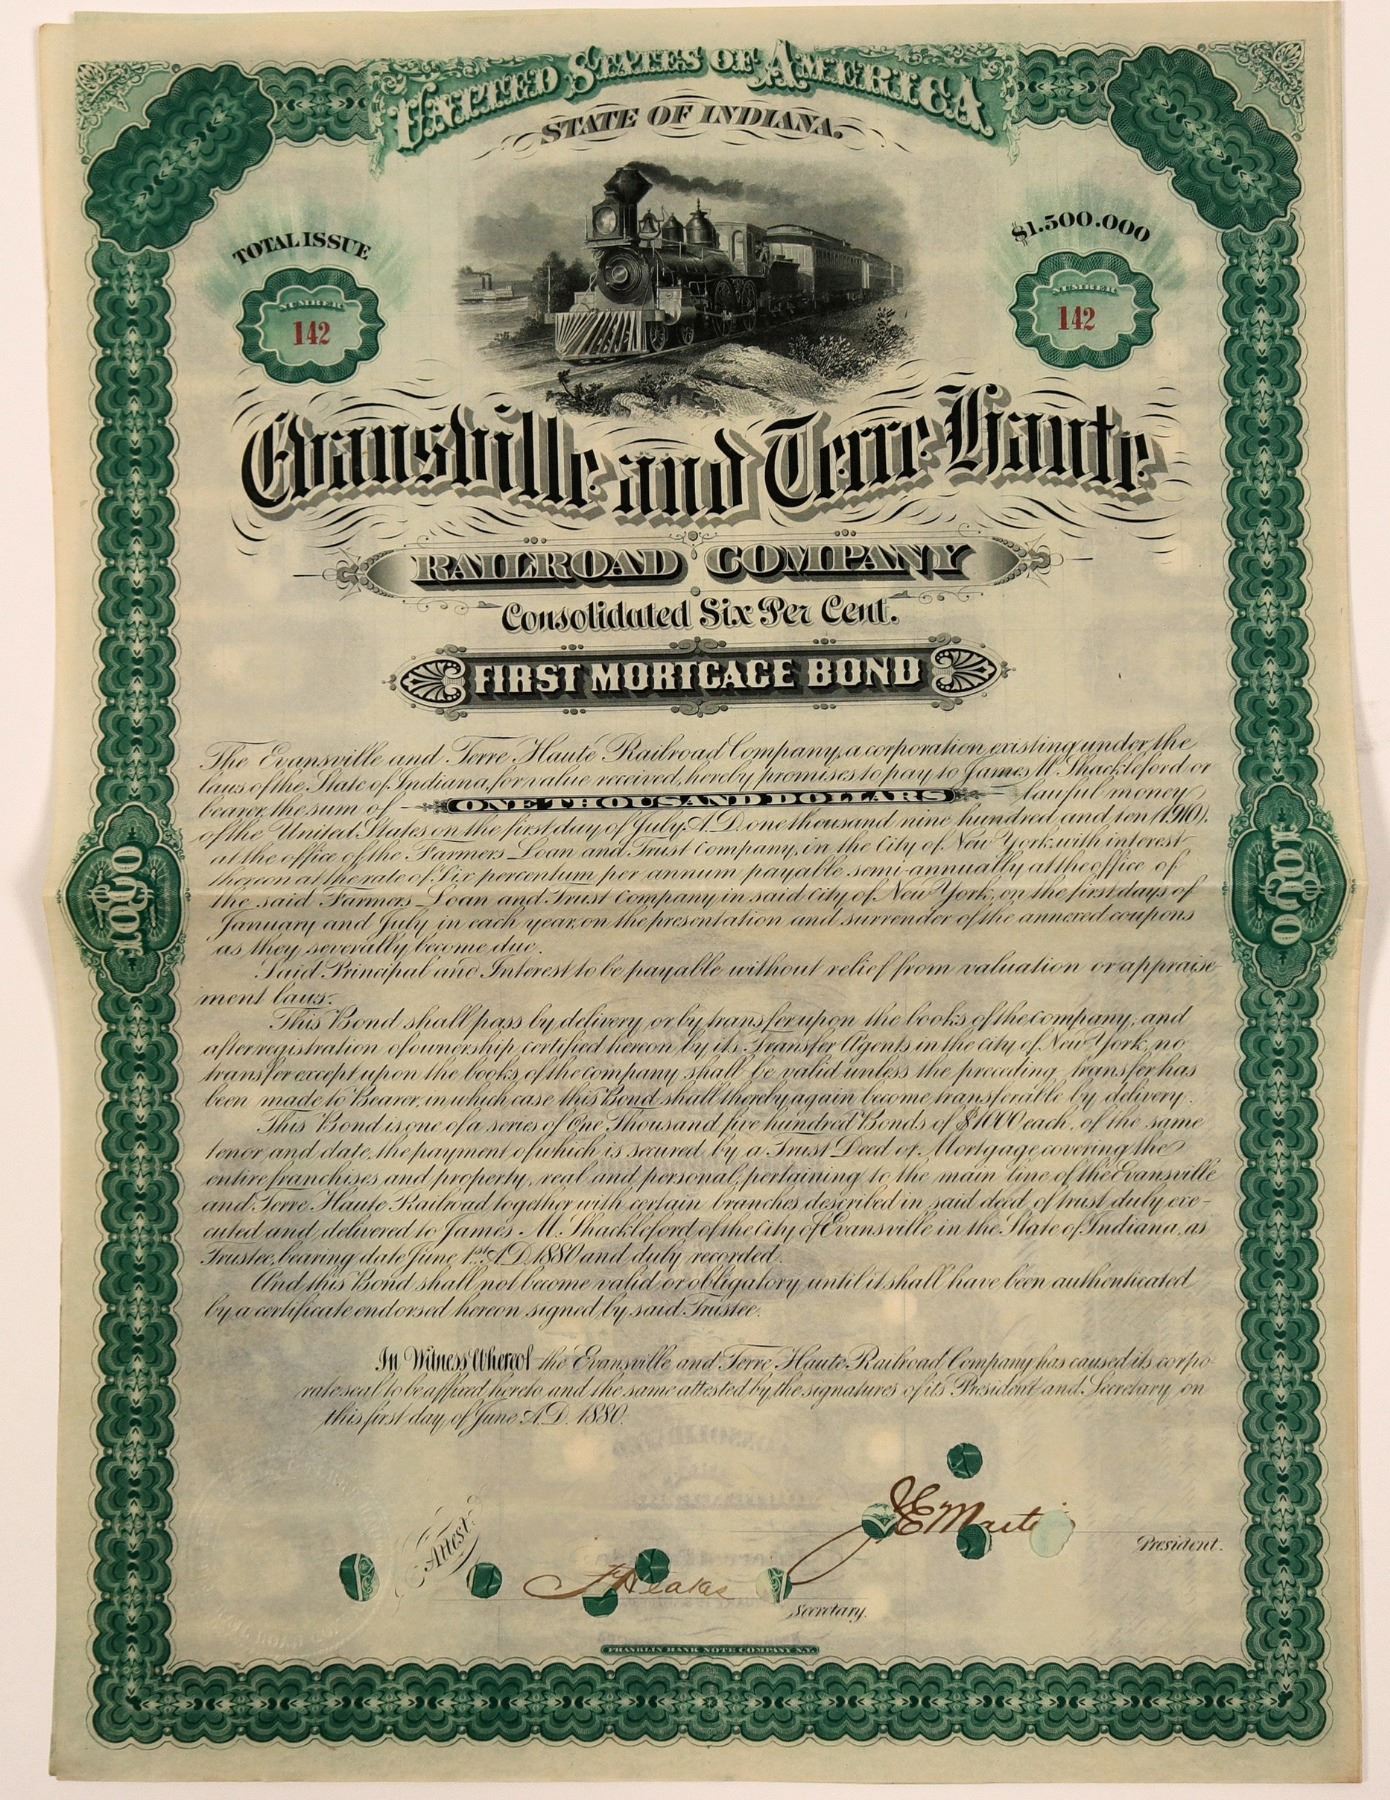 UNITED STATES OF AMERICA
STATE OF INDIANA.
TOTAL ISSUE
$1.500.000
NUMBER
142
NUMBER
142
Evansville and Terre Haute
RAILROAD COMPANY
Consolidated Six Per Cent.
FIRST MORTGAGE BOND
The Evansville and Terre Haute Railroad Company, a corporation existing under the
laws of the State of Indiana, for value received, hereby promises to pay to James M. Shackleford or
bearer, the sum of ONE THOUSAND DOLLARS lawful money
of the United States on the first day of July A.D. one thousand nine hundred and ten (1910).
at the office of the Farmers Loan and Trust Company, in the City of New York, with interest
thereon at the rate of Six per centum per annum payable semi-annually at the office of
the said Farmers Loan and Trust Company in said City of New York, on the first days of
January and July in each year, on the presentation and surrender of the annexed coupons
as they severally become due.
Said Principal and Interest to be payable without relief from valuation or appraise-
ment laws.
This Bond shall pass by delivery, or by transfer upon the books of the company, and
after registration of ownership, certified hereon by its Transfer Agents in the City of New York, no
transfer except upon the books of the company shall be valid unless the preceding transfer has
been made to Bearer, in which case this Bond shall thereby again become transferable by delivery.
This Bond is one of a series of One Thousand five hundred Bonds of $1000 each, of the same
tenor and date, the payment of which is secured by a Trust Deed or Mortgage covering the
entire franchises and property, real and personal, pertaining to the main line of the Evansville
and Terre Haute Railroad together with certain branches described in said deed of trust duly exe-
cuted and delivered to James M. Shackleford of the City of Evansville in the State of Indiana, as
Trustee, bearing date June 1st A.D. 1880 and duly recorded.
And this Bond shall not become valid or obligatory until it shall have been authenticated
by a certificate endorsed hereon signed by said Trustee.
In Witness Whereof the Evansville and Terre Haute Railroad Company has caused its corpo-
rate seal to be affixed hereto and the same attested by the signatures of its President and Secretary, on
this first day of June A.D. 1880.
$1000
$1000
J E Martin
President.
Attest.
Secretary.
FRANKLIN BANK NOTE COMPANY N.Y.